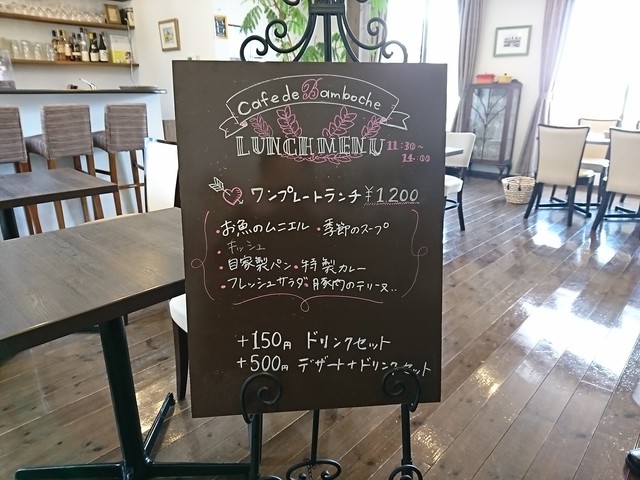 Cafe de Bamboche
LUNCH MENU 11:30~
14:00
ワンプレートランチ ¥1,200
・お魚のムニエル ・季節のスープ
・キッシュ
・自家製パン ・特製カレー
・フレッシュサラダ ・豚肉のテリーヌ..
+150円 ドリンクセット
+500円 デザート+ドリンクセット